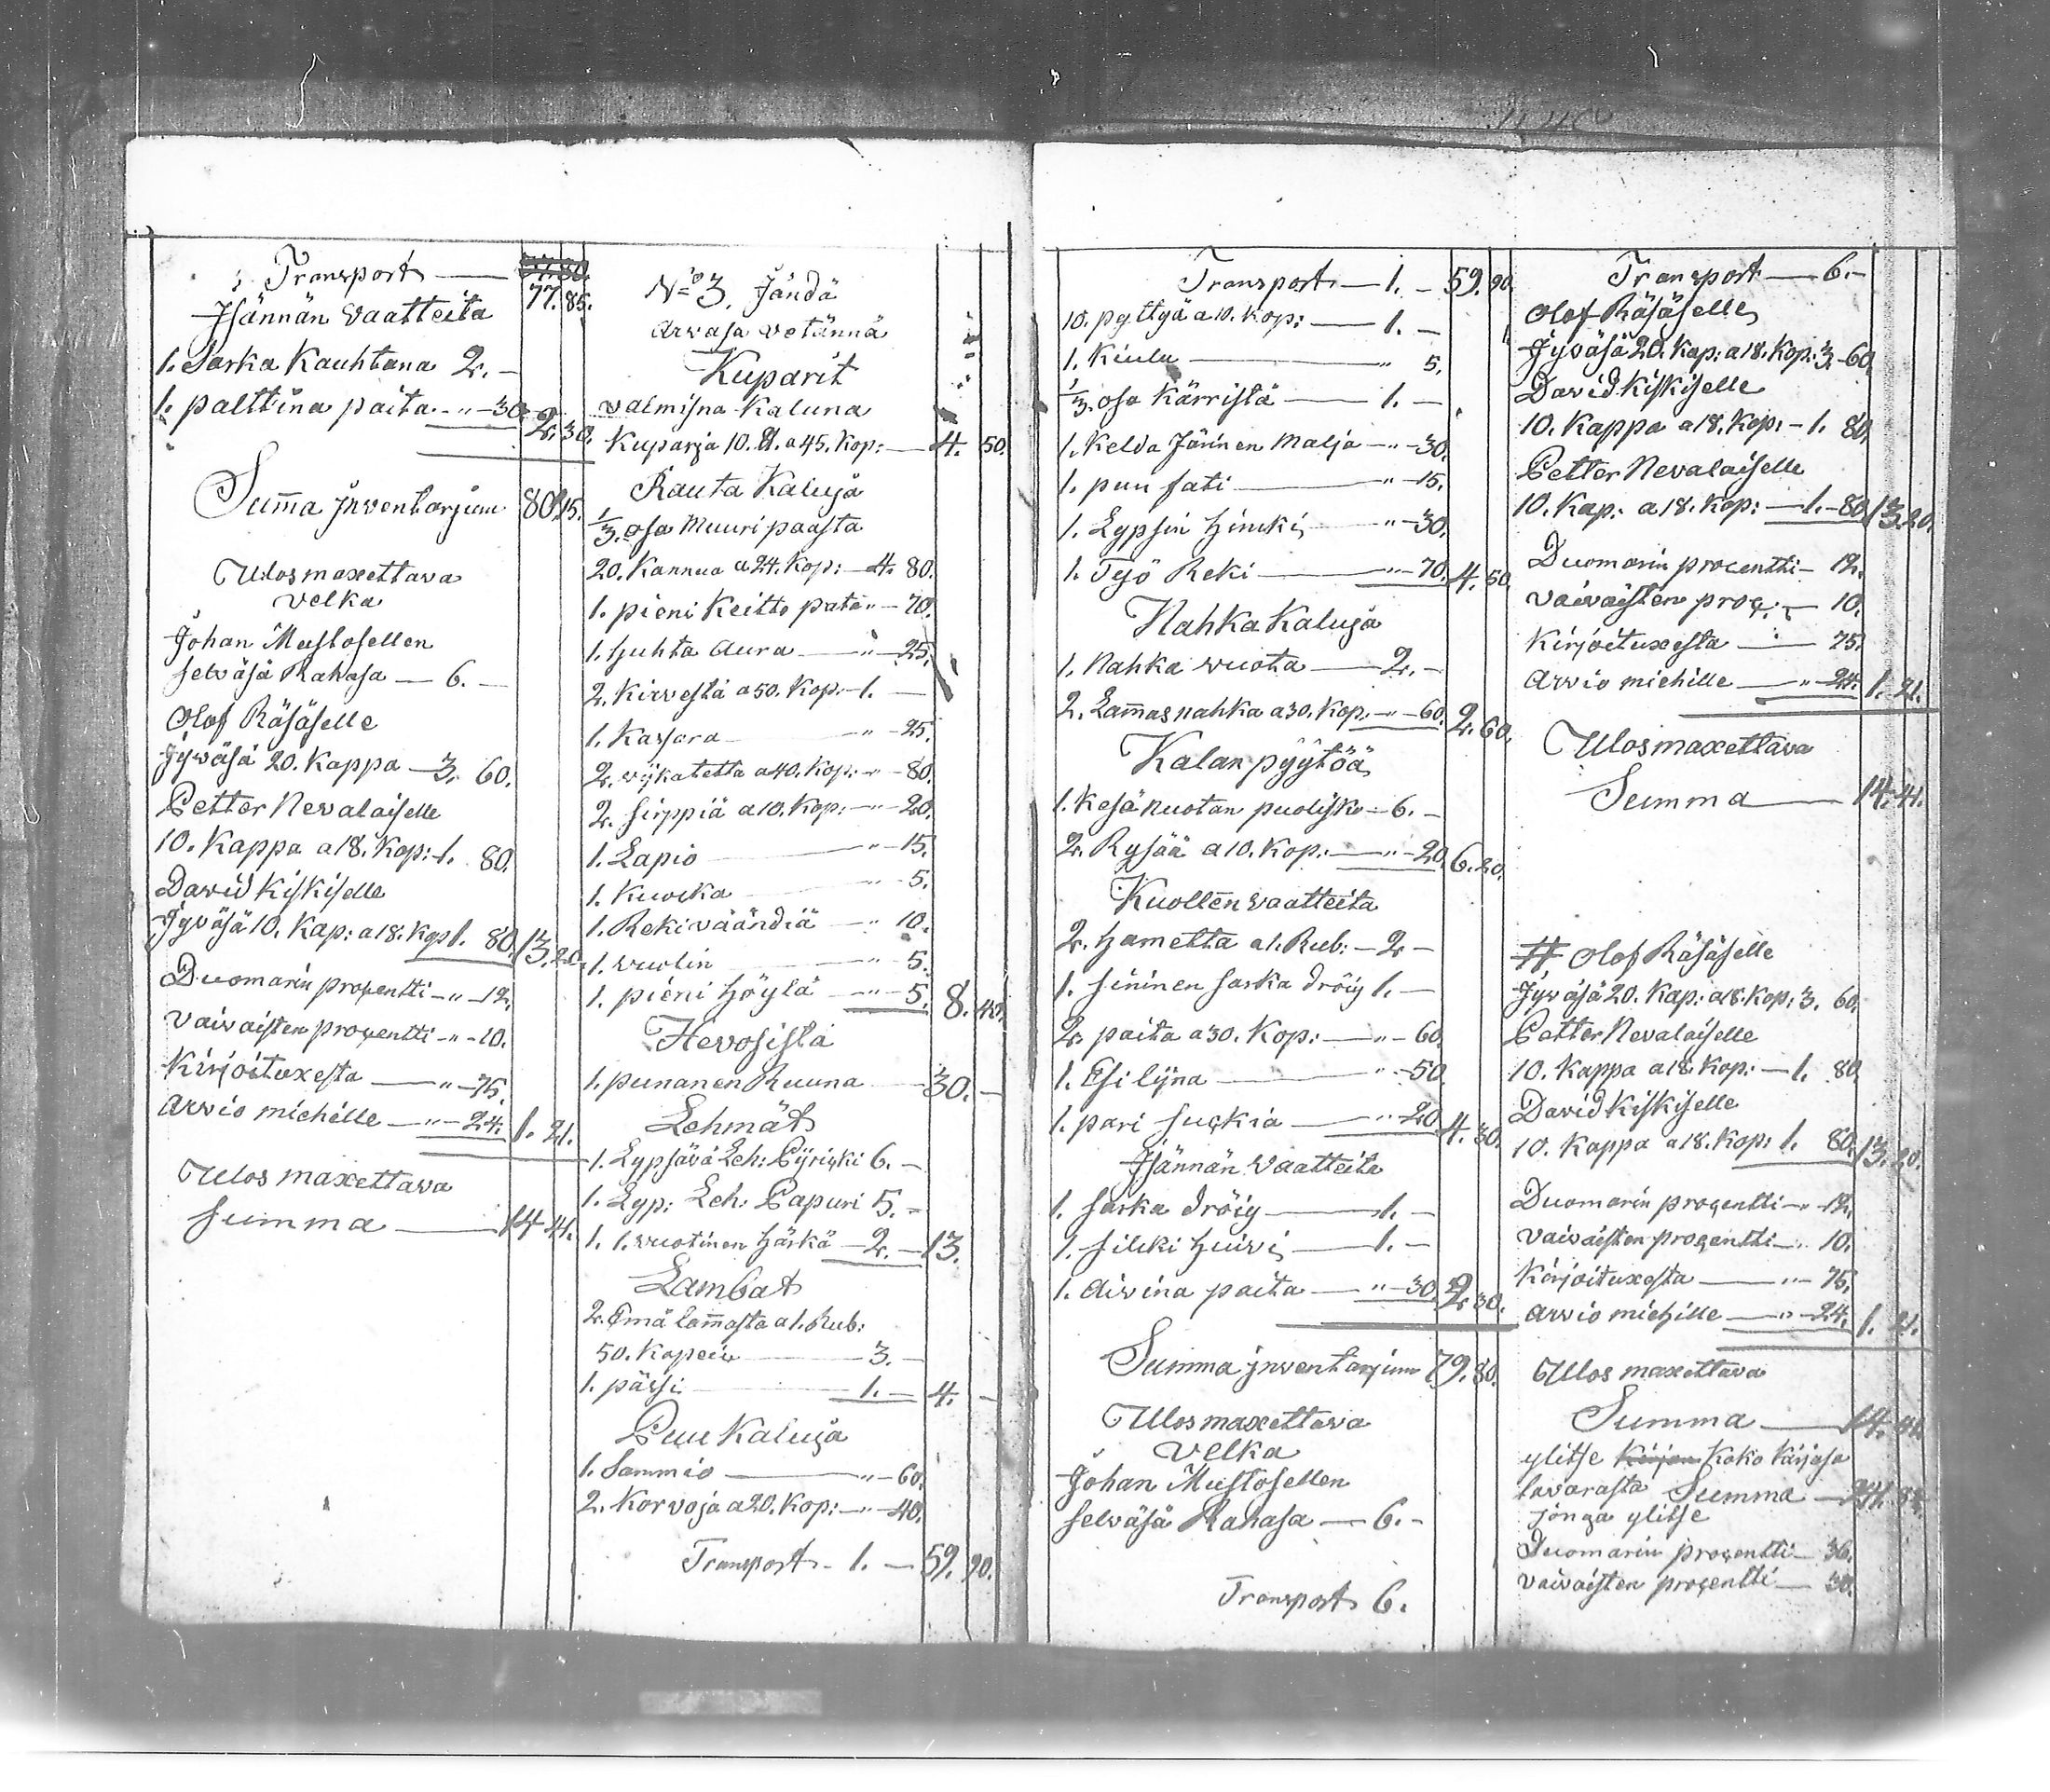 Transport —
77. 85.
Isännän Vaatteita
1. Sarka Kauhtana 2. —
1. palttina paita - " - 30. 2. 30.
Summa jnventarjum 80. 15.
Ulosmaxettava
velka
Johan Mustosellen
selväsä Rahasa — 6. —
Olof Räsäselle
Jyväsä 20. Kappa — 3. 60.
Petter Nevalaiselle
10. Kappa a 18. Kop: 1. 80.
David Kiskiselle
Jyväsä 10. Kap: a 18. Kop 1. 80. 13. 20.
Duomarin procentti - " - 12.
Vaivaisten procentti - " - 10.
Kirjoituxesta — " - 75.
Arvio miehille — " - 24. 1. 21.
Ulos maxettava
summa — 14. 41.
No 3. Jändä
arvasa vetännä
Kuparit
valmisna Kaluna
Kuparja 10. ℔. a 45. Kop: — 4. 50.
Rauta Kaluja
1/3. osa Muuri paasta
20. Kannua a 24. Kop: — 4. 80.
1. pieni Keitto pata " - 70.
1. huhta Aura — " - 25.
2. Kirvestä a 50. Kop: - 1. —
1. Kassara — " - 25.
2. vijkatetta a 40. Kop: - " - 80.
2. sirppiä a 10. Kop: - " - 20.
1. Lapio — " - 15.
1. Kuocka — " - 5.
1. Rekiväändiä — " 10.
1. vuolin — " - 5.
1. pieni höylä — " - 5. 8. 40.
Hevosista
1. punanen Ruuna — 30. —
Lehmät
1. Lypsävä Leh: Pijricki 6. —
1. Lyp: Leh: Papuri 5. —
1. 1. vuotinen härkä — 2. — 13.
Lambat
2. Emä lam̄asta a 1. Rub:
50. Kopein — 3. —
1. pässi — 1. — 4. —
Puu Kaluja
1. Sammio — " - 60.
2. Korvoja a 20. Kop: — " - 40.
Transport - 1. — 59. 90.
Transport — 1. — 59. 90.
10. pyttyä a 10. Kop: — 1. —
1. Kiulu — " 5.
1/3. osa Kärristä — 1. —
1. Kelda Järinen Malja — " - 30.
1. puu fati — " - 15.
1. Lypsin hincki — " - 30.
1. Tejö Reki — " - 70. 4. 50.
Nahka Kaluja
1. Nahka vuota — 2. —
2. Lam̄asnahka a 30. Kop: - " - 60. 2. 60.
Kalan pyytöä
1. Kesä nuotan puolisko — 6. —
2. Rysää a 10. Kop: — " - 20. 6. 20.
Kuollen vaatteita
2. hametta a 1. Rub: — 2 —
1. sininen sarka dröig 1. —
2. paita a 30. Kop: — " - 60.
1. Esilijna — " - 50.
1. pari suckia — " - 20. 4. 30.
Isännän Vaatteita
1. sarka dröig — 1. —
1. silcki huivi — 1. —
1. Aivina paita — " - 30. 2. 30.
Summa jnventarjum 79. 80.
Ulosmaxettava
velka
Johan Mustosellen
selväsä Rahasa — 6. —
Transport 6.
Transport — 6. —
Olof Räsäselle
Jyväsä 20. Kap: a 18. Kop: 3. 60.
David Kiskiselle
10. Kappa a 18. Kop: - 1. 80.
Petter Nevalaiselle
10. Kap: a 18. Kop: — 1. - 80. 13. 20.
Duomarin procentti — 12.
vaivaisten proc: — 10.
Kirjoituxesta — 75.
Arvio miehille — " - 24. 1. 21.
Ulosmaxettava
Summa — 14. 41.
# Olof Räsäselle
Jyväsä 20. Kap: a 18. Kop: 3. 60.
Petter Nevalaiselle
10. Kappa a 18. Kop: — 1. 80.
David Kiskiselle
10. Kappa a 18. Kop: 1. 80. 13. 20.
Duomarin procentti — " - 12.
vaivaisten procentti — " 10.
Kirjoituxesta — " - 75.
arvio miehille — " - 24. 1. 21.
Ulos maxettava
Summa — 14. 41.
ylitse Kirjan Koko Kirjasa
tavarasta Summa —
jonga ylitse
Duomarin procentti — 36.
vaivaisten procentti — 30.